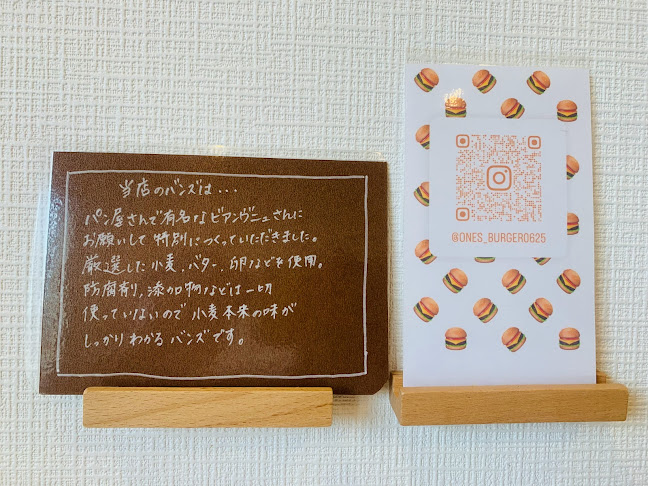 当店のバンズは・・・
パン屋さんで有名なビアンヴニュさんに
お願いして特別につくっていただきました。
厳選した小麦、バター、卵などを使用。
防腐剤、添加物などは一切
使っていないので小麦本来の味が
しっかりわかるバンズです。
@ONES_BURGER0625